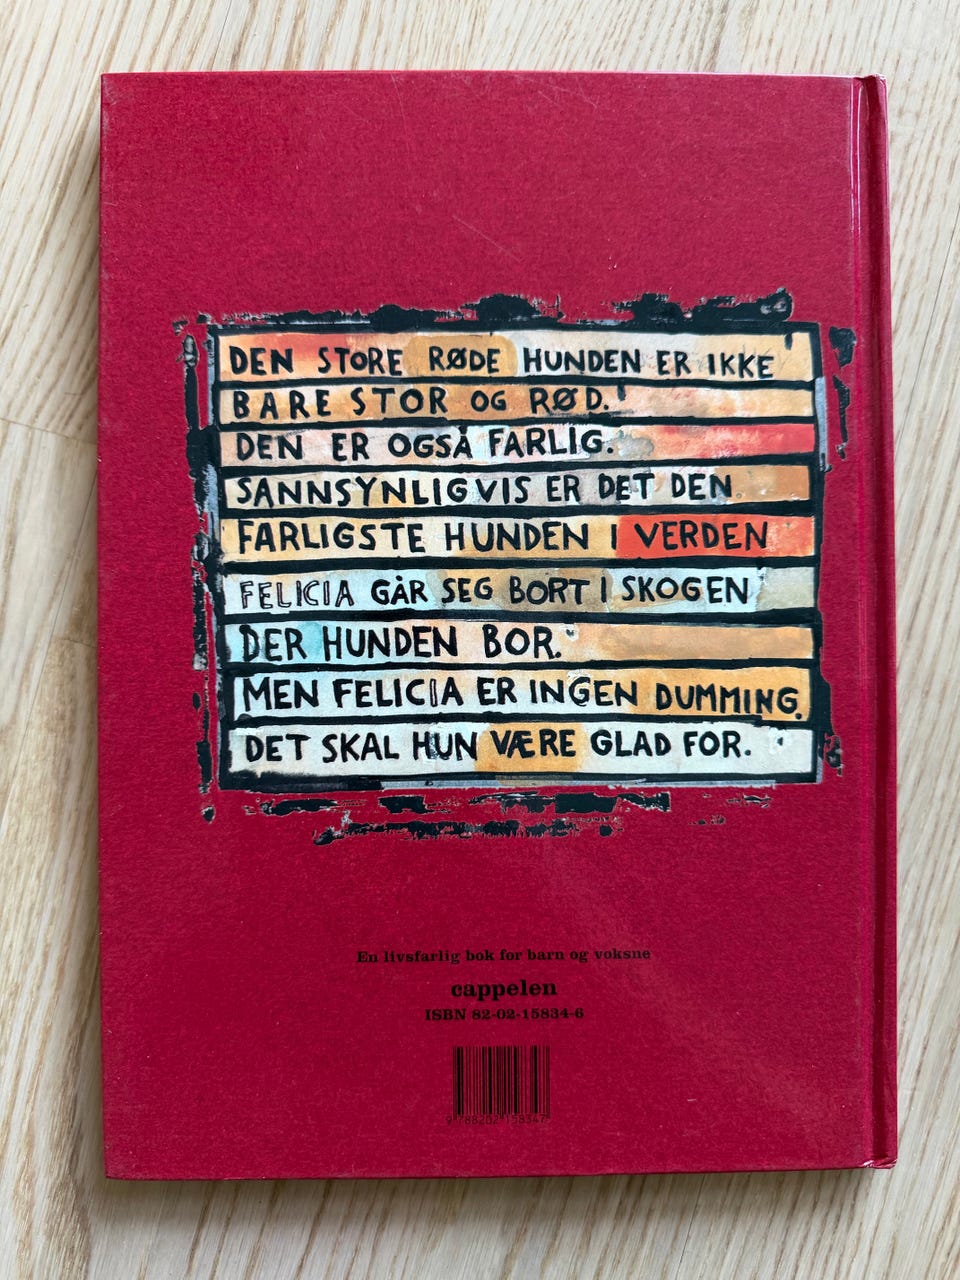 DEN STORE RØDE HUNDEN ER IKKE
BARE STOR OG RØD.
DEN ER OGSÅ FARLIG.
SANNSYNLIGVIS ER DET DEN
FARLIGSTE HUNDEN I VERDEN
FELICIA GÅR SEG BORT I SKOGEN
DER HUNDEN BOR.
MEN FELICIA ER INGEN DUMMING.
DET SKAL HUN VÆRE GLAD FOR.
En livsfarlig bok for barn og voksne
cappelen
ISBN 82-02-15834-6
9 788202 158347